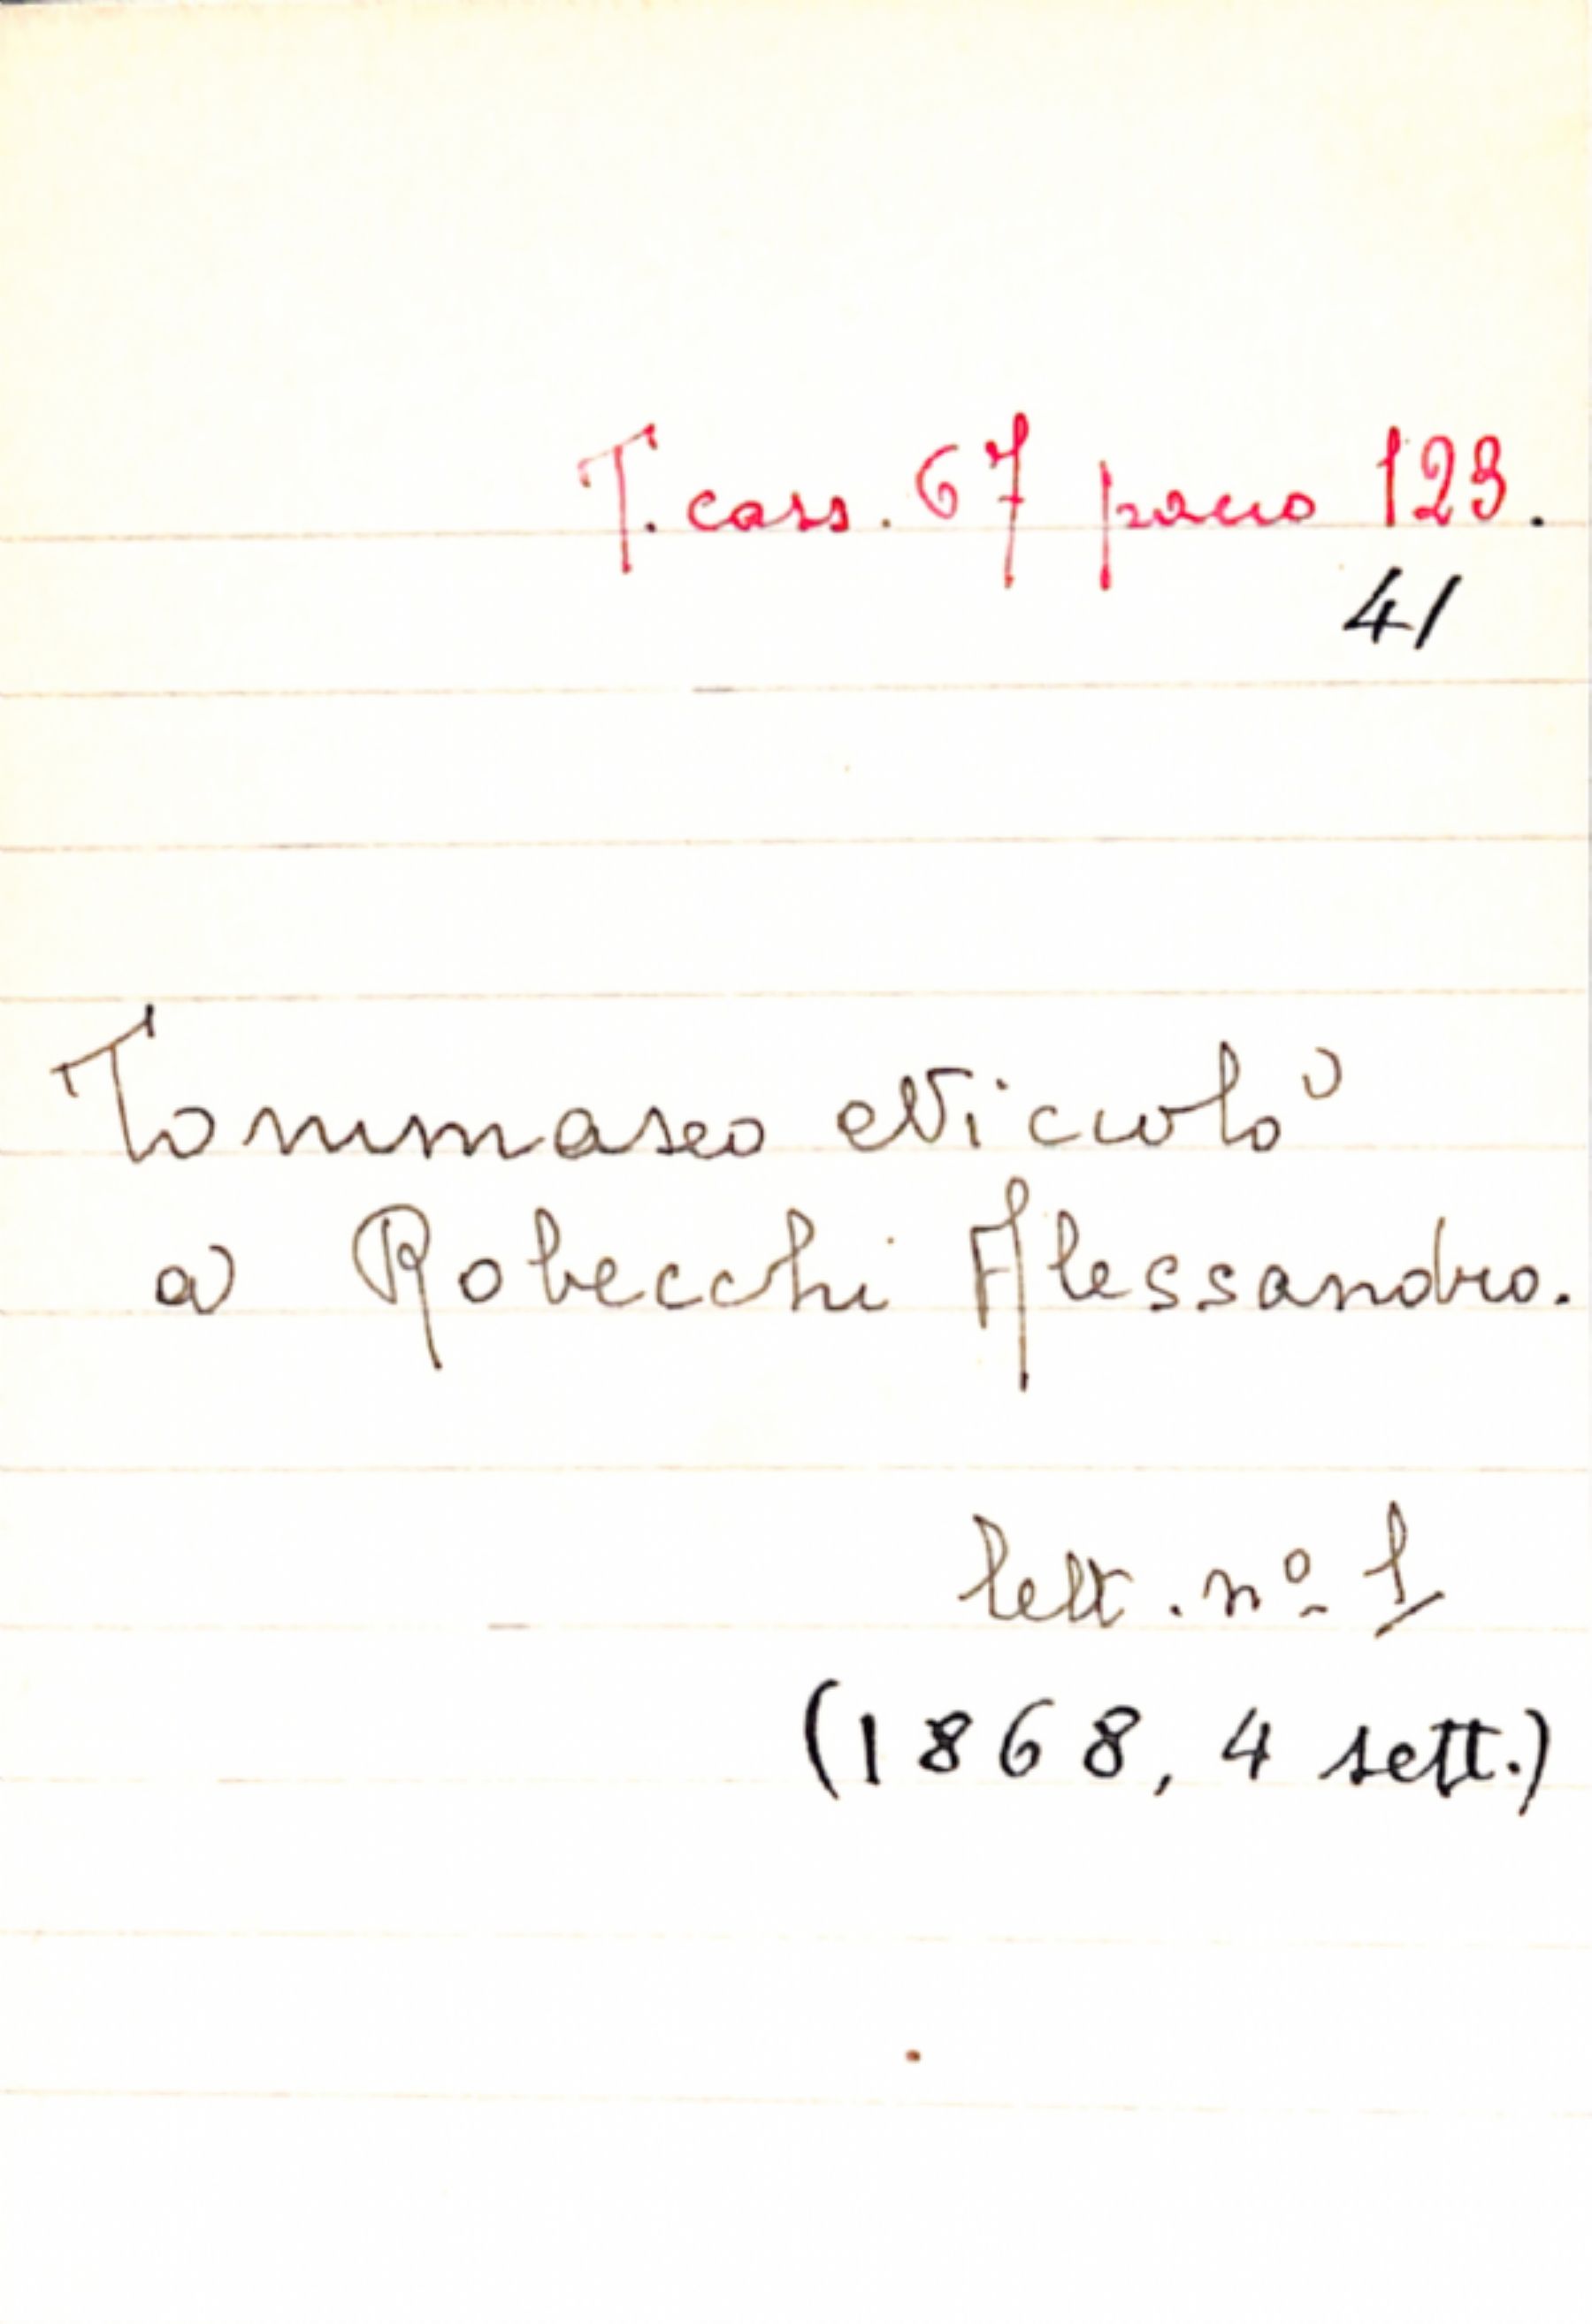 T. cass. 67 pacco 123.
41
Tommaseo Niccolò
a Robecchi Alessandro.
lett. nº 1
(1868, 4 sett.)